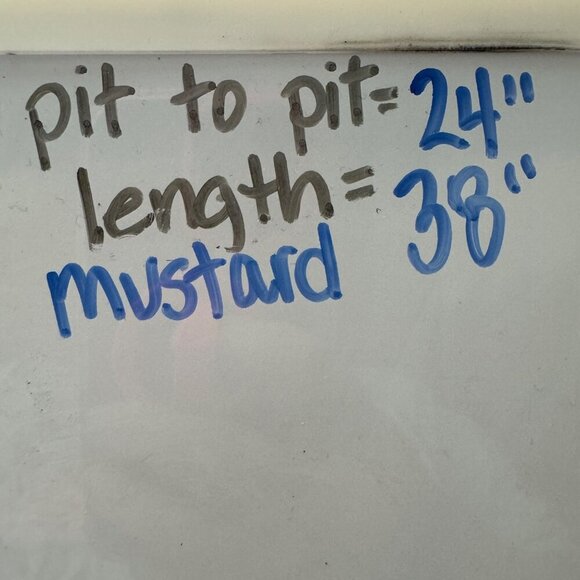 pit to pit= 24"
length= 38"
mustard